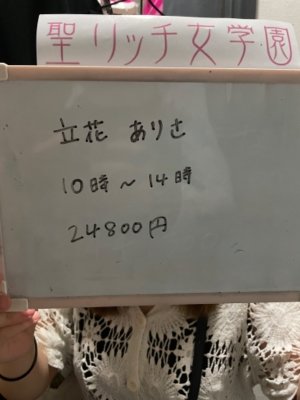 聖リッチ女学園
立花 ありさ
10時～14時
24800円